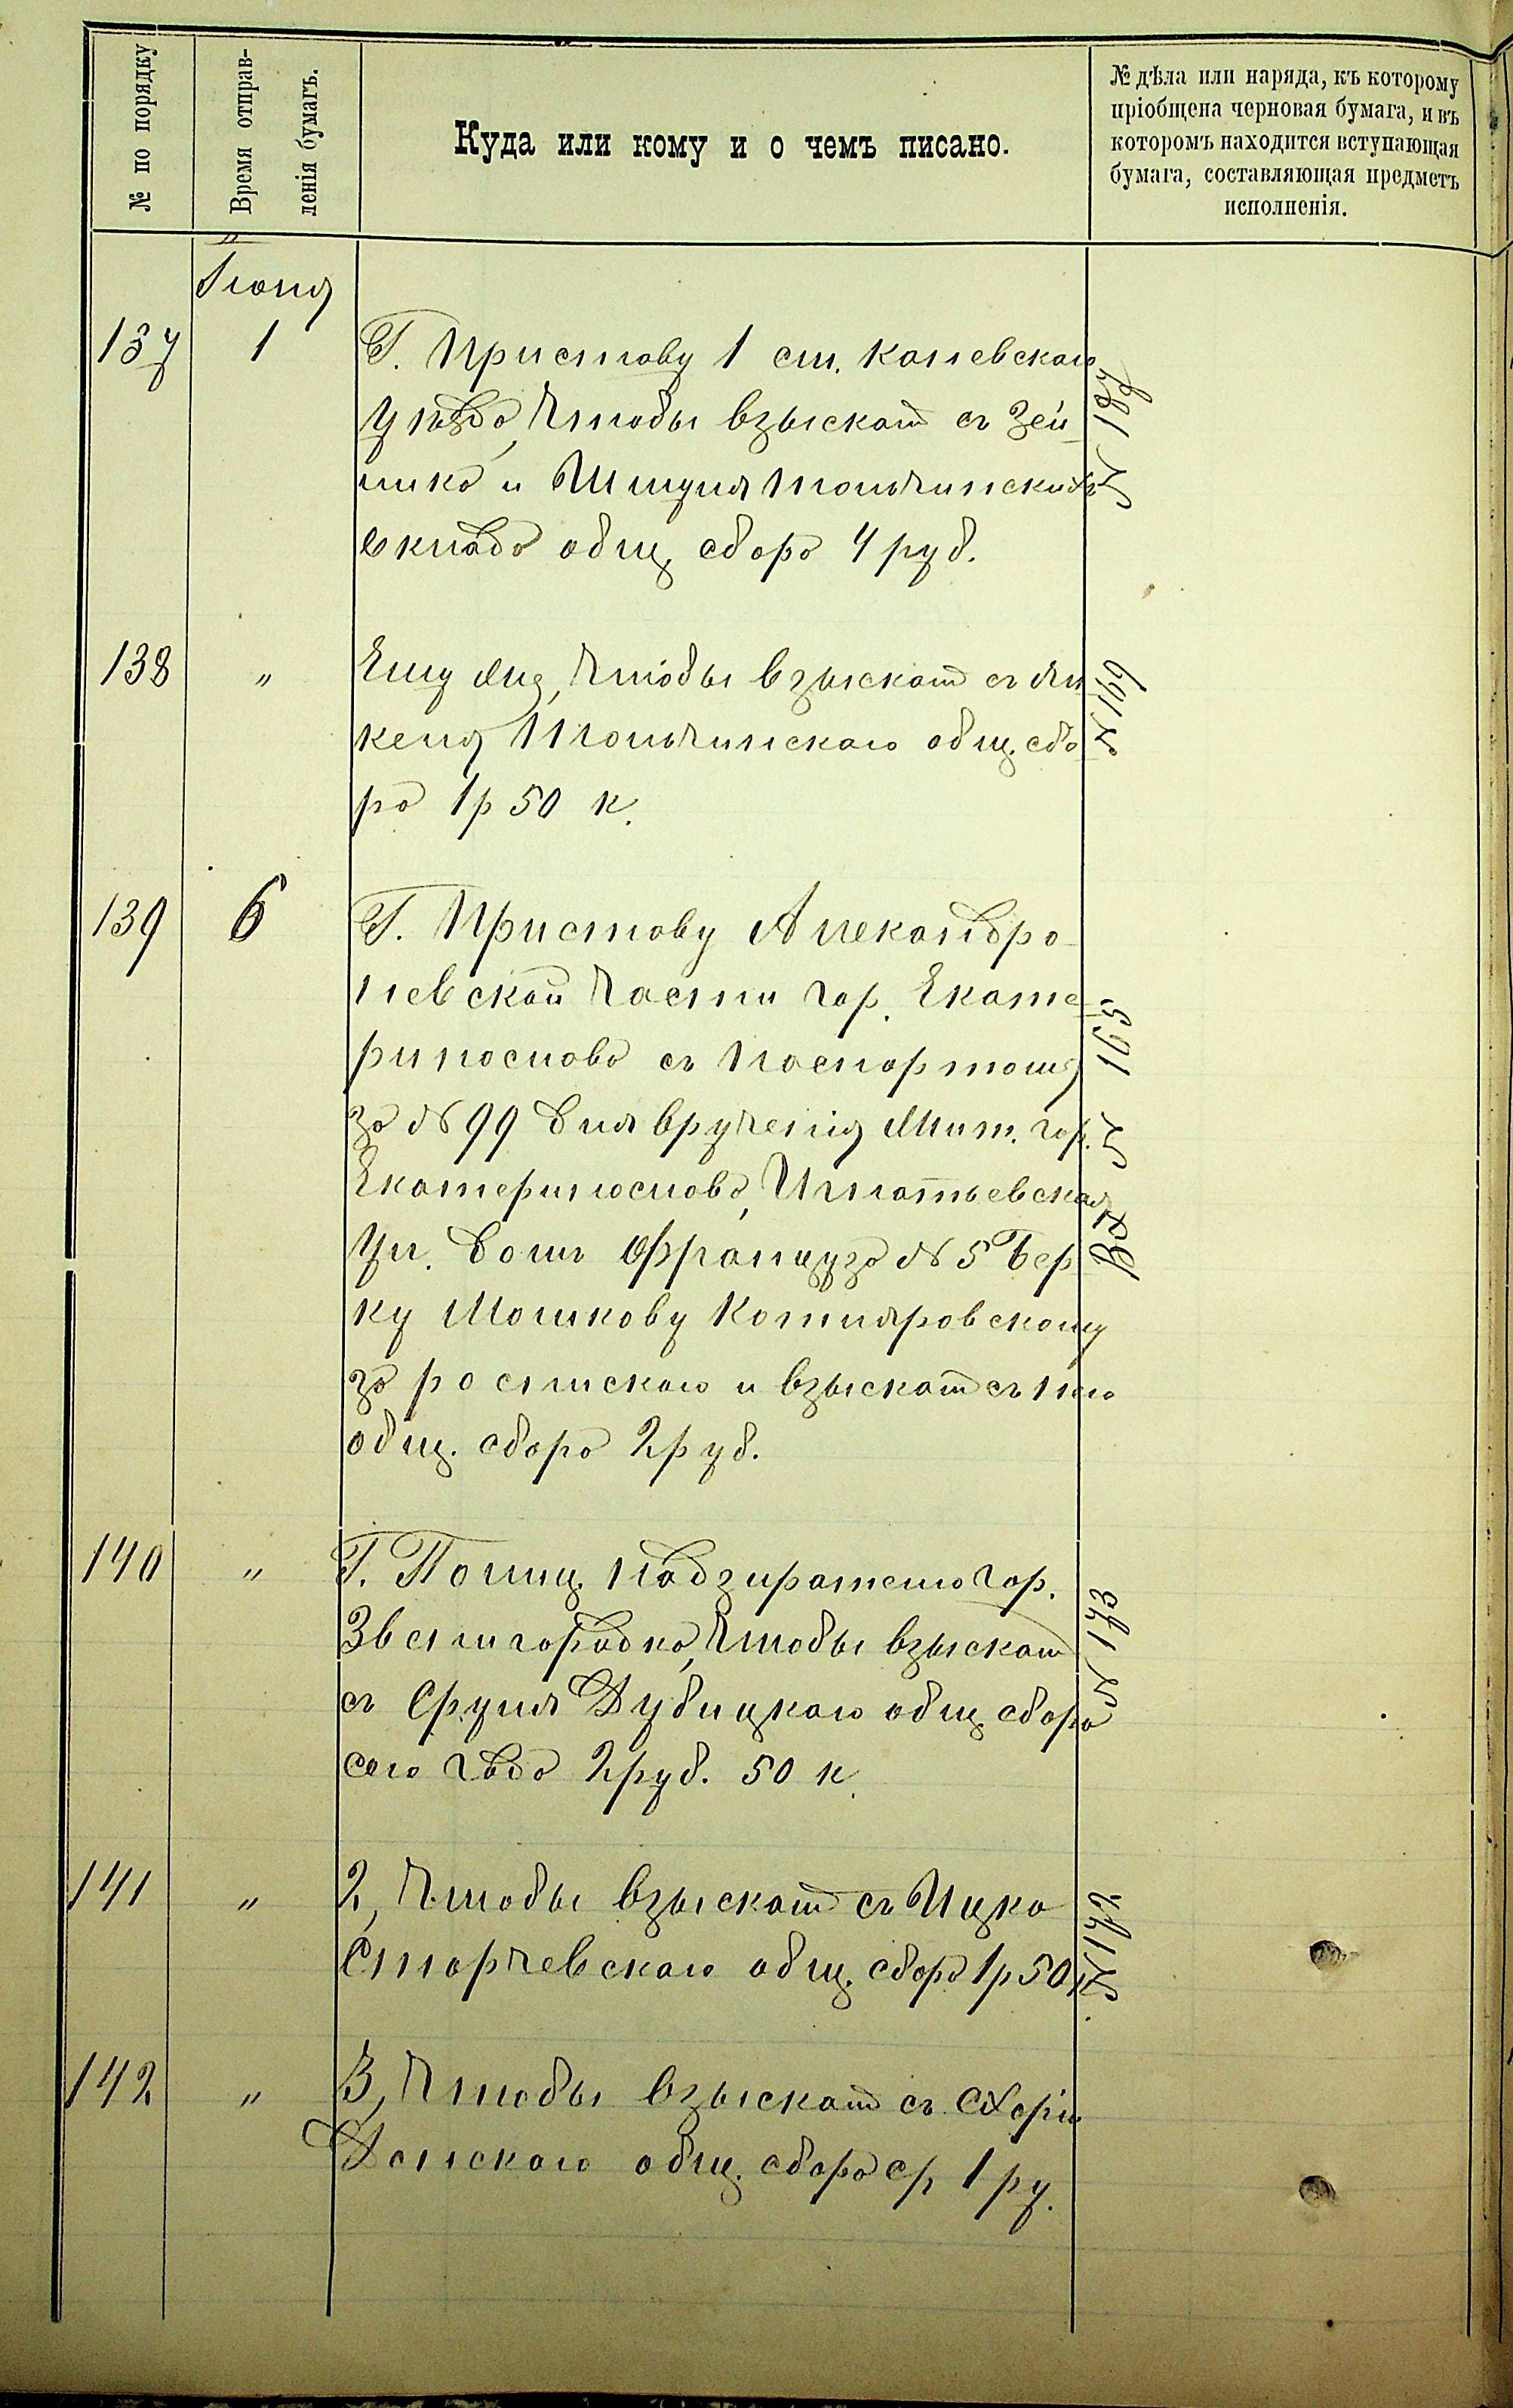 № по порядку
Время отправ-
ленія бумагъ.
Куда или кому и о чемъ писано.
№ дѣла или наряда, къ которому
пріобщена черновая бумага, и въ
которомъ находится вступающая
бумага, составляющая предметъ
исполненія.
"
Іюня
137 1 Г. Приставу 1 ст. Каневскаго
уѣзда, чтобы взыскать съ Зей-
и Шмуля
общ. сбора 4 руб.
№ 187
138 " Ему же, чтобы взыскать съ
общ. сбо
ра 1 р 50 к.
№ 169
139 6 Г. Приставу Александро-
невской части гор. Екате-
ринослава съ паспортомъ
за № 99 для врученія Жит. гор.
Екатеринослава, Игнатьевская
ул. домъ Француза № 5 Бер
ку Мошкову Котляровскому
за роспискою и взыскать съ него
общ. сбора 2 руб.
Вх. № 165
140 " Г. Полиц. Надзирателю гор.
Звенигородка, чтобы взыскать
съ Сруля Дубицкаго общ. сбора
сего года 2 руб. 50 к.
№ 173
141 " 2, чтобы взыскать съ Ицка
Сторчевскаго общ. сбора 1 р 50 к
№ 172
142 " 3, чтобы взыскать съ
Донскаго общ. сбора ср 1 ру.